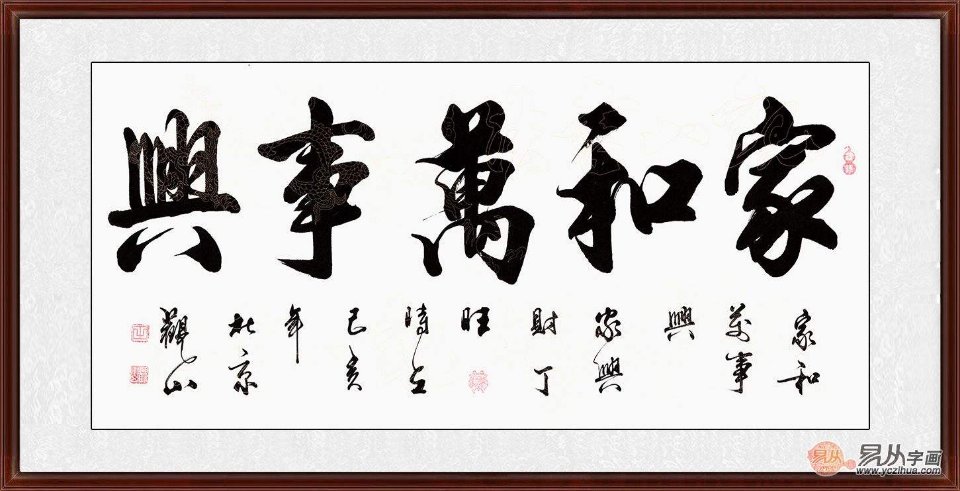 家和萬事興
家和
萬事
興
家興
財丁
旺
時在
己亥
年
北京
觀山
易从字画
www.yczihua.com